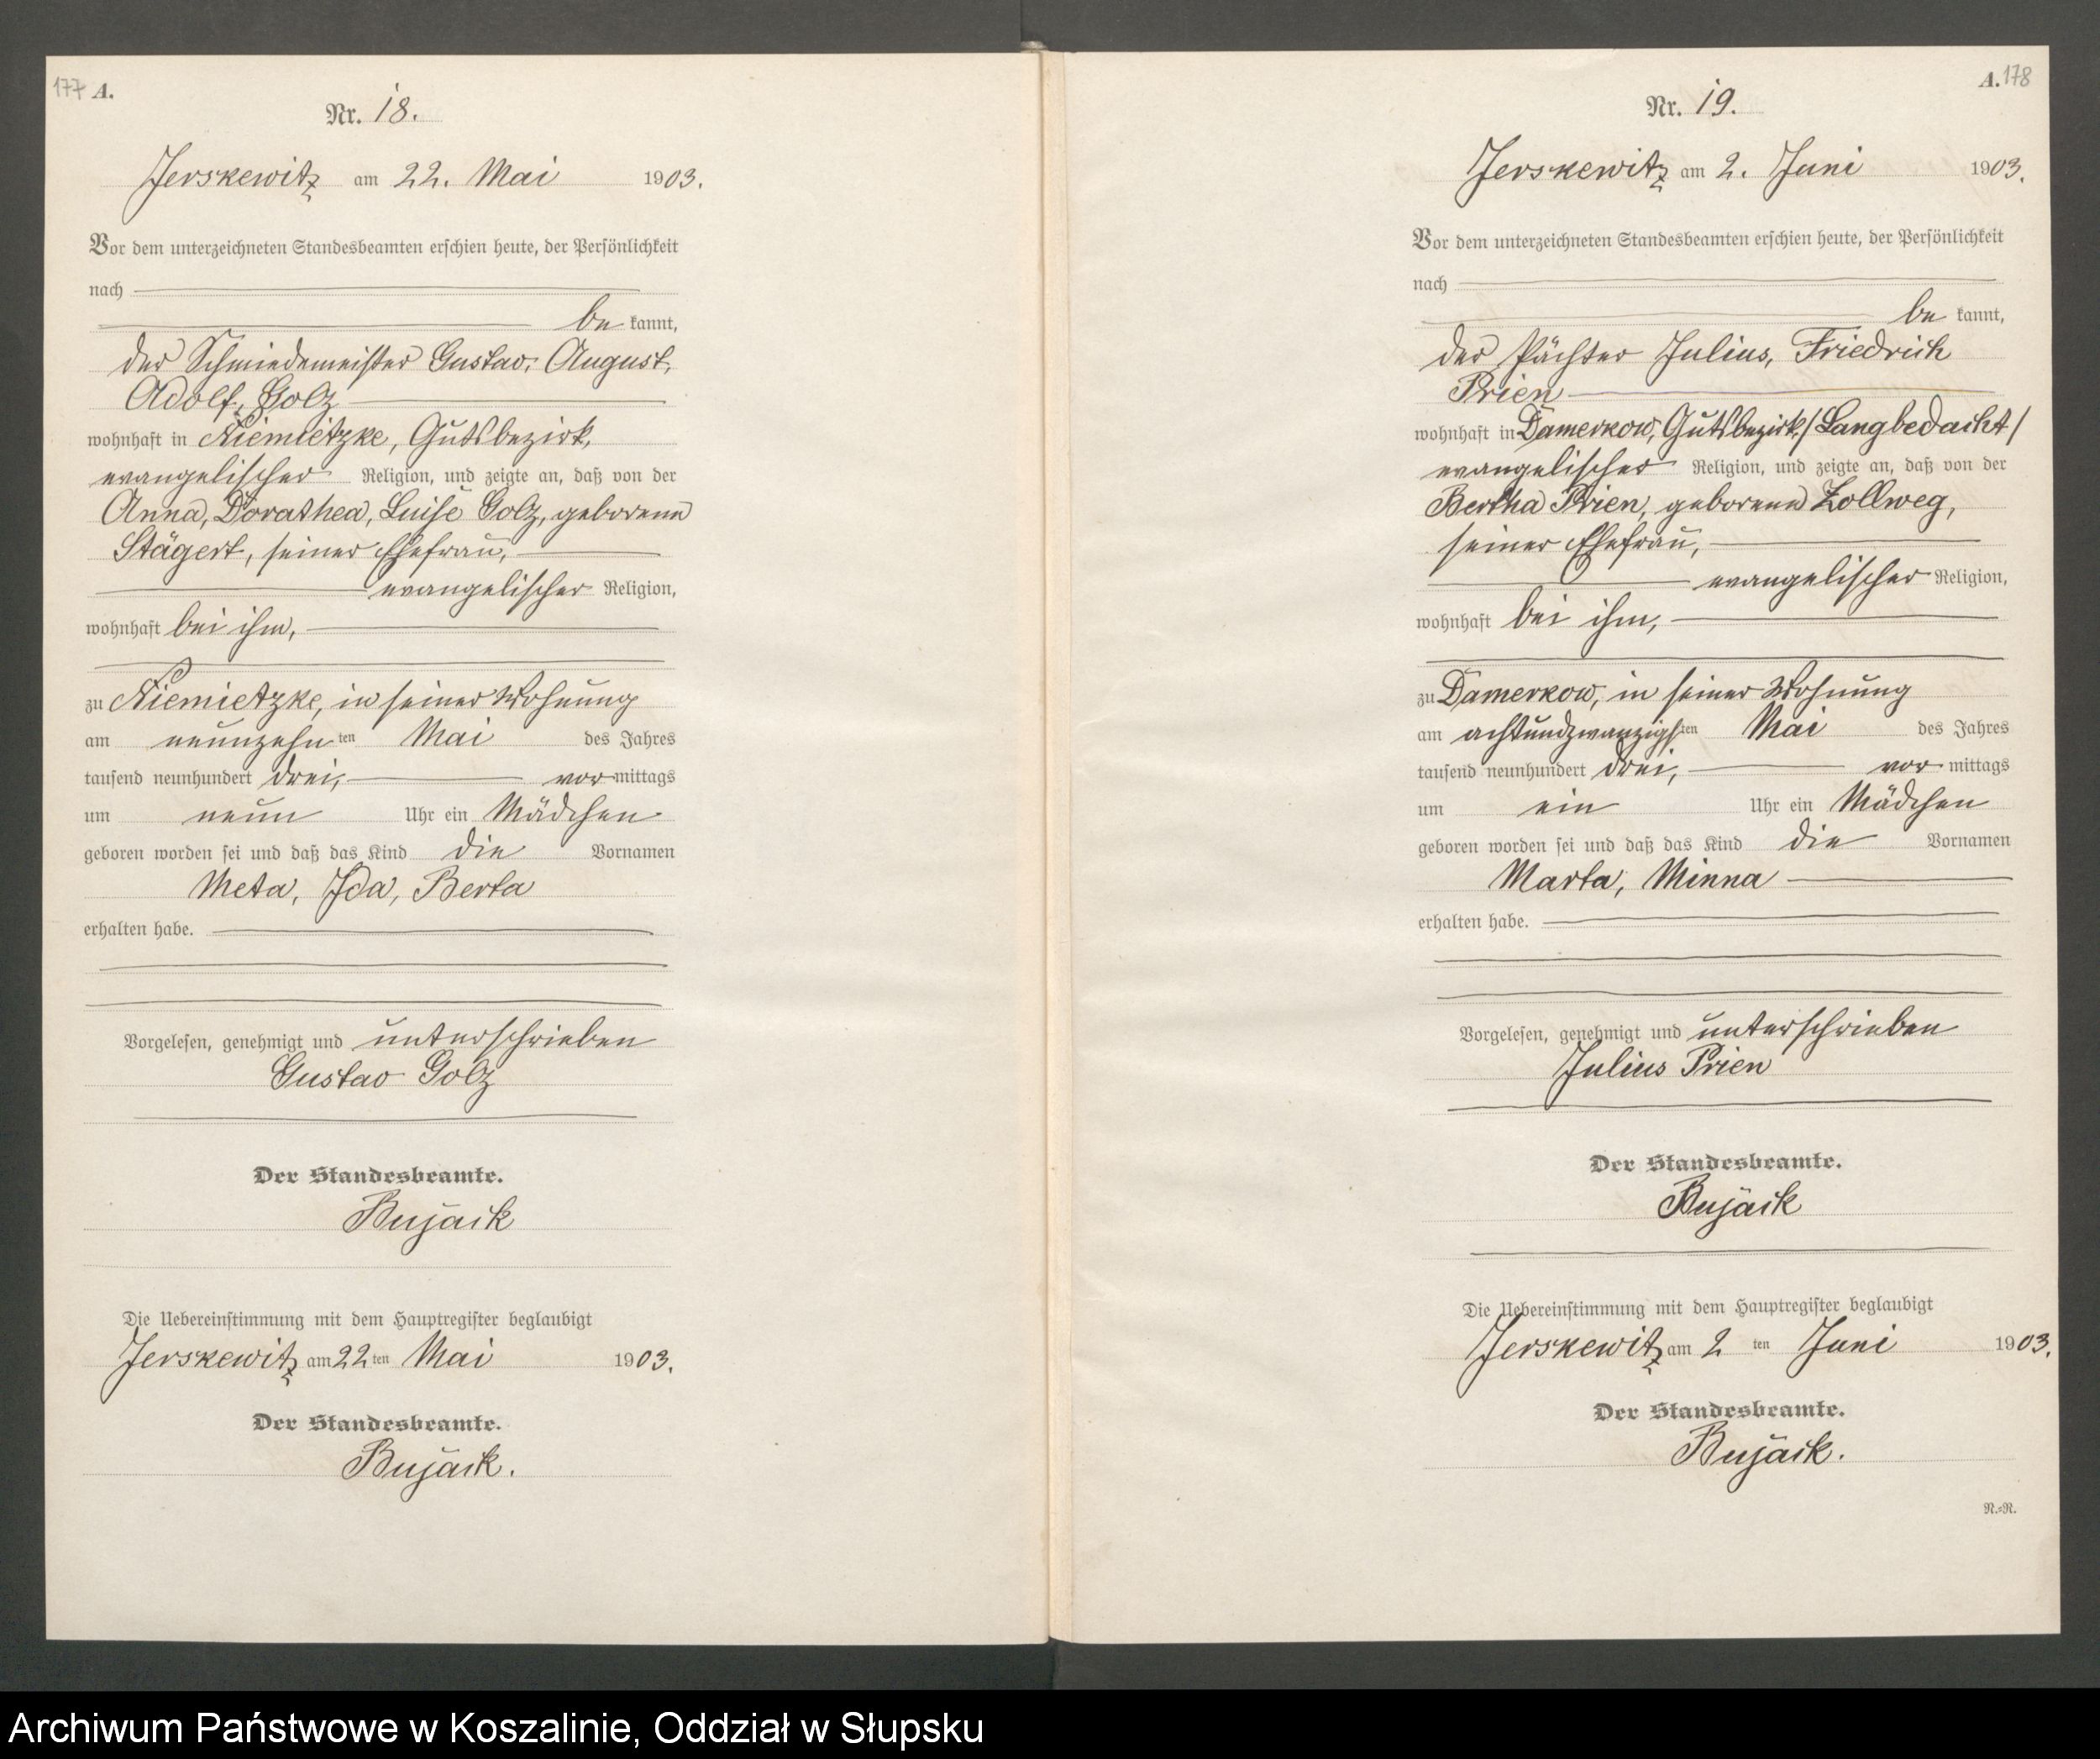 177 A.
Nr. 18.
Jerskewitz am 22. Mai 1903.
Vor dem unterzeichneten Standesbeamten erschien heute, der Persönlichkeit
nach
be kannt,
der Schmiedemeister Gustav, August,
Adolf, Golz
wohnhaft in Niemietzke, Gutsbezirk,
evangelischer Religion, und zeigte an, daß von der
Anna, Dorathea, Luise Golz, geborenen
Stägert, seiner Ehefrau,
evangelischer Religion,
wohnhaft bei ihm,
zu Niemietzke, in seiner Wohnung
am neunzehnten Mai des Jahres
tausend neunhundert drei, vormittags
um neun Uhr ein Mädchen
geboren worden sei und daß das Kind die Vornamen
Meta, Ida, Berta
erhalten habe.
Vorgelesen, genehmigt und unterschrieben
Gustav Golz
Der Standesbeamte.
Bujack
Die Uebereinstimmung mit dem Hauptregister beglaubigt
Jerskewitz am 22 ten Mai 1903.
Der Standesbeamte.
Bujack.
A. 178
Nr. 19.
Jerskewitz am 2. Juni 1903.
Vor dem unterzeichneten Standesbeamten erschien heute, der Persönlichkeit
nach
be kannt,
der Pächter Julius, Friedrich
Prien
wohnhaft in Damerkow, Gutsbezirk, /Langbedacht/
evangelischer Religion, und zeigte an, daß von der
Bertha Prien, geborenen Zollweg,
seiner Ehefrau,
evangelischer Religion,
wohnhaft bei ihm,
zu Damerkow, in seiner Wohnung
am achtundzwanzigsten Mai des Jahres
tausend neunhundert drei, vor mittags
um ein Uhr ein Mädchen
geboren worden sei und daß das Kind die Vornamen
Marta, Minna
erhalten habe.
Vorgelesen, genehmigt und unterschrieben
Julius Prien
Der Standesbeamte.
Bujack
Die Uebereinstimmung mit dem Hauptregister beglaubigt
Jerskewitz am 2 ten Juni 1903.
Der Standesbeamte.
Bujack.
R.=R.
Archiwum Państwowe w Koszalinie, Oddział w Słupsku